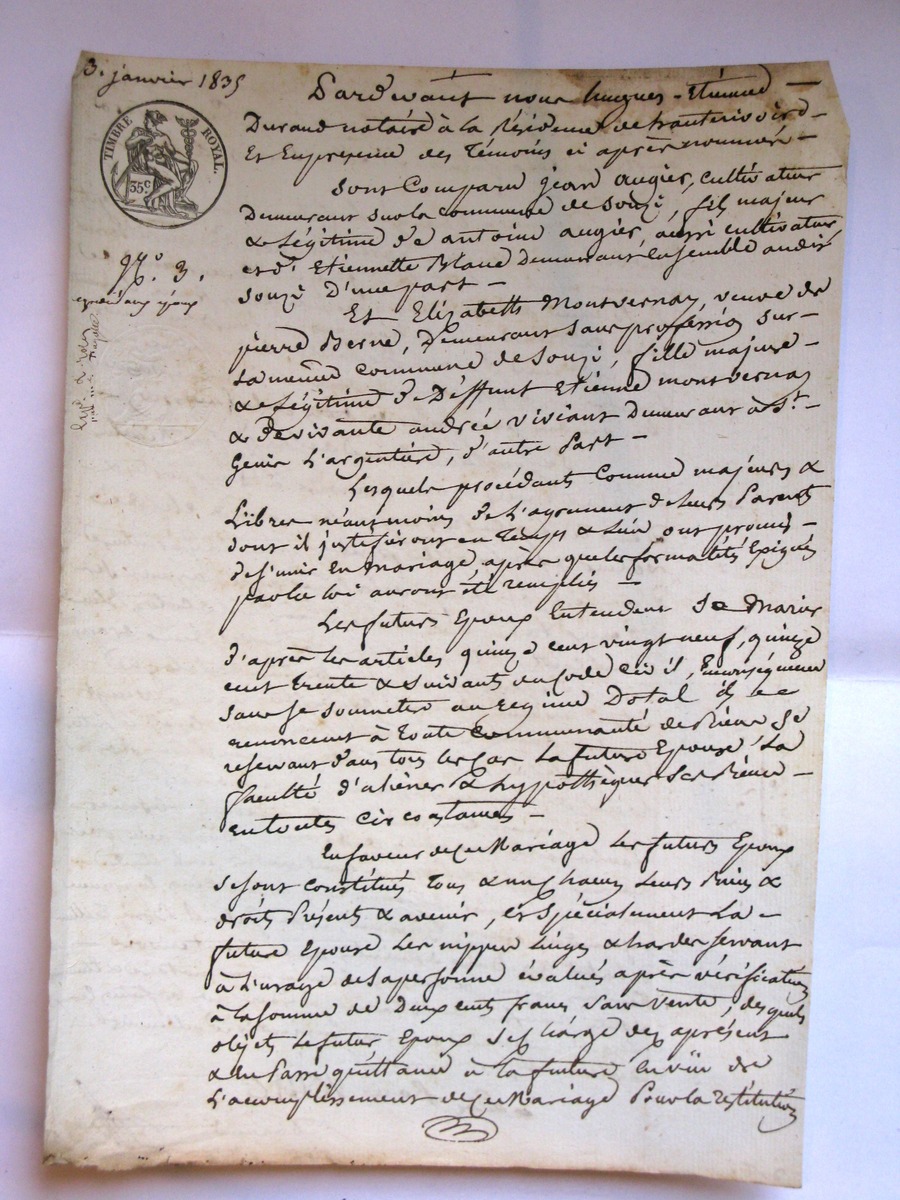 3. janvier 1835
TIMBRE ROYAL.
35 c
N.º 3.
Pardevant nous hugues-Etienne
Durand notaire à la Résidence de
Et En presence des Témoins ci après nommés
Sont Comparu jean augier, cultivateur
Demeurant sur la commune de Souzi, fils majeur
& Légitime de antoine augier, aussi cultivateur
et d' Etiennette Blanc Demeurant Ensemble audit
Souzi D'une part
Et Elizabeth Montvernay, veuve de
pierre Berne, Demeurant sans profession sur
La meme commune de Souzi, fille majeure
& Légitime de Déffunt Etienne montvernay
& de vivante andrée viviant Demeurant à St
Genis L'argentière, d'autre Part
Lesquels procédants Comme majeurs &
Libres néantmoins de L'agrement de Leurs Parents
dont il justifieront en Temps & Lieu ont promis
de s'unir En mariage après que les formalités Exigées
par la Loi auront été remplies
Les futurs Epoux Entendent Se Marier
d'après les articles quinze cent vingt neuf, quinze
cent trente & suivants du Code civil, En conséquence
sans se soumettre au regime Dotal ils
renoncent à toute communauté de Biens se
reservant dans tous les cas La future Epouse La
faculté d'aliéner & hypothèquer Ses Biens
en toutes circostances
En faveur de Ce Mariage Les futurs Epoux
se sont constitués tous & un chacun Leurs Biens &
droits Présents & avenir, et Spécialement La
future Epouse Les nippes Linges & hardes servant
à L'usage de Sa personne évalués après vérification
à la somme de Deux cents francs Sans vente, desquels
objets Le futur Epoux se charge dès aprésent
& En Passe quittance à la future En vüe de
L'accomplissement de Ce Mariage Pour la restitution